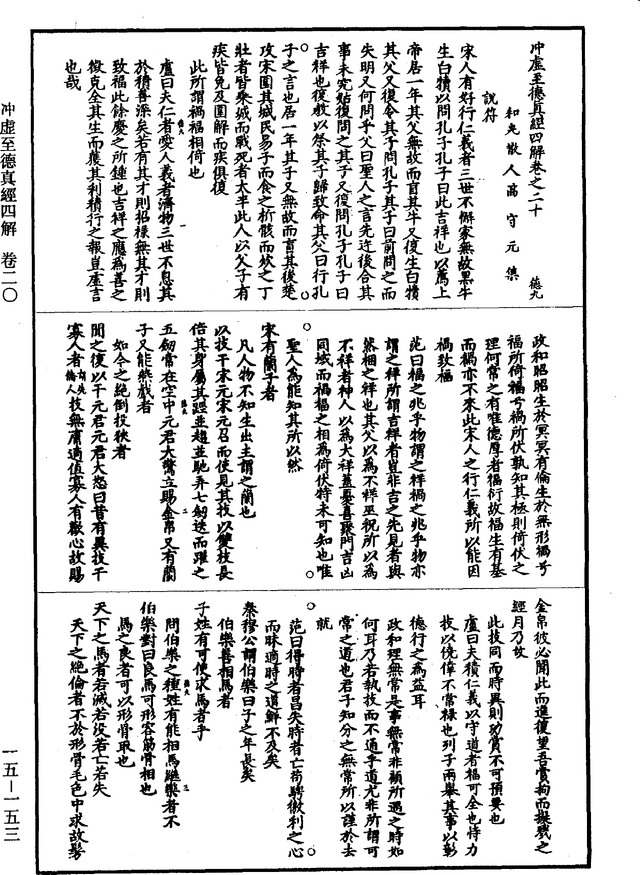 沖虛至德真經四解卷之二十
和光散人高守元集 德九
說符
宋人有好行仁義者三世不懈家無故黑牛
生白犢以問孔子孔子曰此吉祥也以薦上
帝居一年其父無故而盲其牛又復生白犢
其父又復令其子問孔子其子曰前問之而
失明又何問乎父曰聖人之言先迕後合其
事未究姑復問之其子又復問孔子孔子曰
吉祥也復教以祭其子歸致命其父曰行孔
子之言也居一年其子又無故而盲其後楚
攻宋圍其城民易子而食之析骸而炊之丁
壯者皆乘城而戰死者太半此人以父子有
疾皆免及圍解而疾俱復
此所謂禍福相倚也
盧曰夫仁者愛人義者濟物三世不怠其
於積善深矣若有其才則招祿無其才則
致福此餘慶之所鍾也吉祥之應為善之
徵克全其生而獲其利積行之報豈虛言
也哉
政和昭昭生於冥冥有倫生於無形禍兮
福所倚福兮禍所伏孰知其極則倚伏之
理何常之有唯德厚者福衍故福生有基
而禍亦不來此宋人之行仁義所以能因
禍致福
范曰福之兆乎物謂之祥禍之兆乎物亦
謂之祥所謂吉祥者豈非吉之先見者與
然相之祥也其父以為不祥巫祝所以為
不祥者神人以為大祥蓋憂喜聚門吉凶
同域而禍福之相為倚伏特未可知也唯
聖人為能知其所以然
宋有蘭子者
凡人物不知生出主謂之蘭也
以技干宋元宋元召而使見其技以雙枝長
倍其身屬其踁並趨並馳弄七劒迭而躍之
五劒常在空中元君大驚立賜金帛又有蘭
子又能燕戲者
如今之絕倒投狹者
聞之復以干元君元君大怒曰昔有異技干
寡人者技無庸適值寡人有歡心故賜
金帛彼必聞此而進復望吾賞拘而擬戮之
經月乃放
此技同而時異則功賞不可預要也
盧曰夫積仁義以守道者福可全也恃力
技以僥倖不常祿也列子兩舉其事以彰
德行之為益耳
政和理無常是事無常非顧所遇之時如
何耳乃若執技而不通乎道尤非所謂可
常之道也君子知分之無常所以謹於去
就
范曰得時者昌失時者亡苟騁徼利之心
而昧適時之道鮮不及矣
秦穆公謂伯樂曰子之年長矣
伯樂善相馬者
子姓有可使求馬者乎
問伯樂之種姓有能相馬繼樂者不
伯樂對曰良馬可形容筋骨相也
馬之良者可以形骨取也
天下之馬者若滅若沒若亡若失
天下之絕倫者不於形骨毛色中求故髣
沖虛至德真經四解 卷二〇
一五－一五三